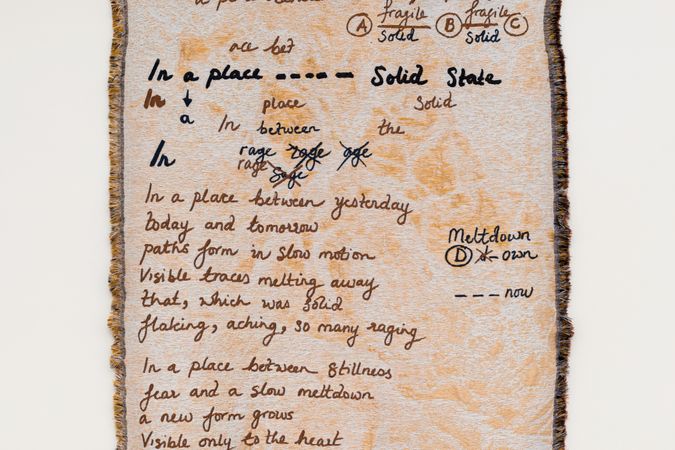 fragile fragile
A solid B solid C
ace bet
In a place ----- Solid State
In place solid
a In between the
In rage
rage
In a place between yesterday
today and tomorrow
paths form in slow motion
Visible traces melting away
that, which was solid
flaking, aching, so many raging
Meltdown
D own
--- now
In a place between stillness
fear and a slow meltdown
a new form grows
Visible only to the heart